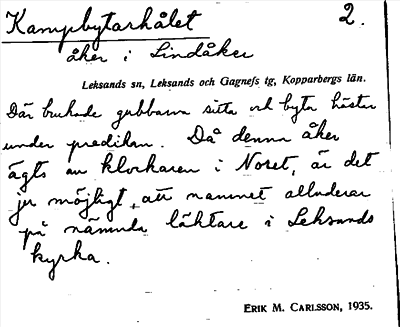 Kampbytarhålet 2.
åker i Lindåker
Leksands sn, Leksands och Gagnefs tg, Kopparbergs län.
Där brukade gubbarna sitta och byta hästar
under predikan. Då denna åker
ägts av klockaren i Noret, är det
ju möjligt, att namnet alluderar
på nämnda läktare i Leksands
kyrka.
ERIK M. CARLSSON, 1935.